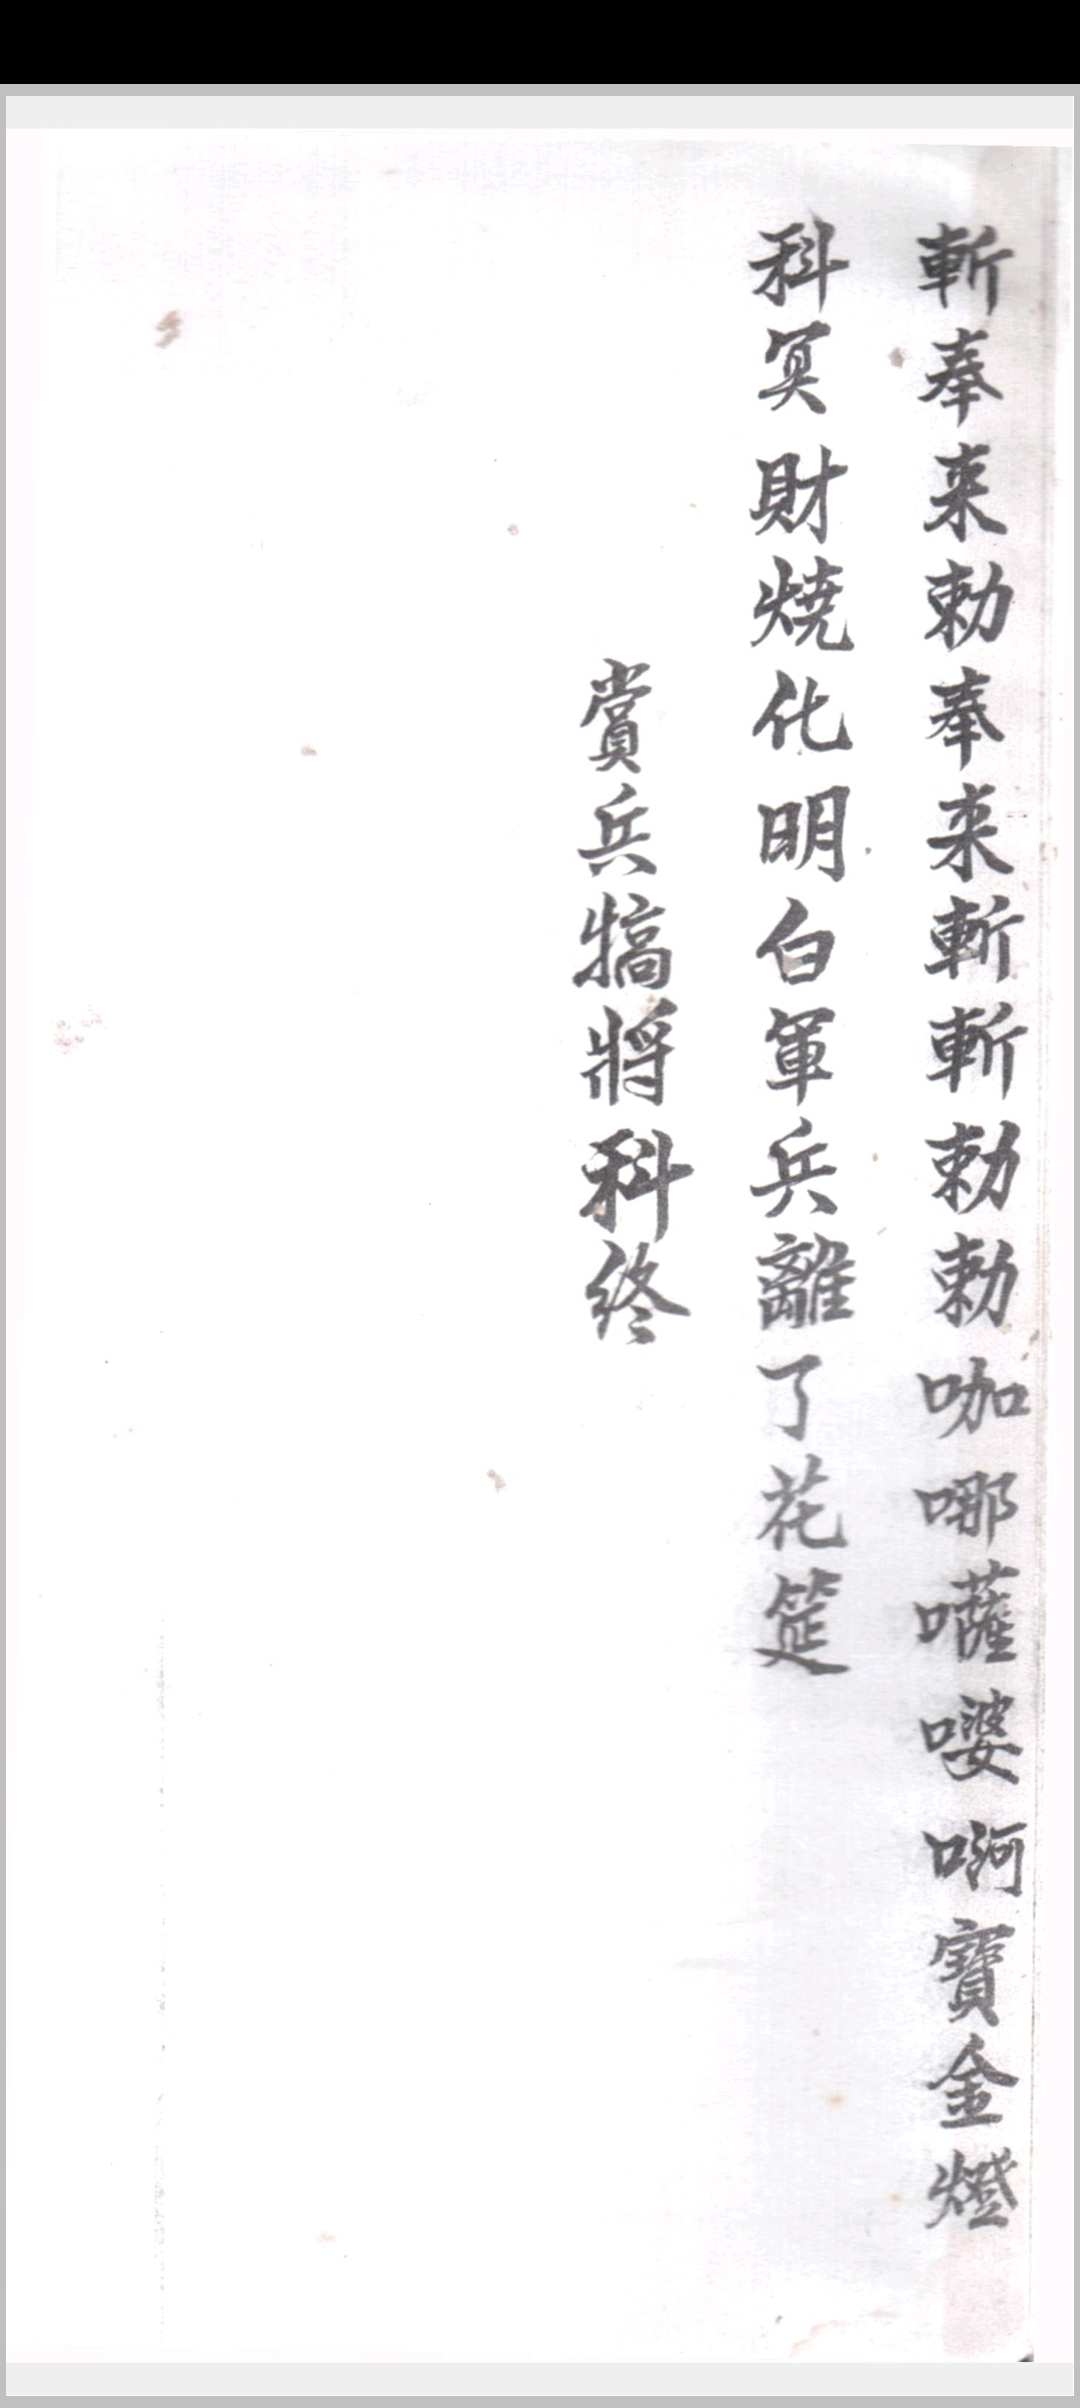 斬奉来勅奉来斬斬勅勅咖哪囖㗑啊寳金燈
科冥財燒化明白軍兵離了花筵
賞兵犒將科終